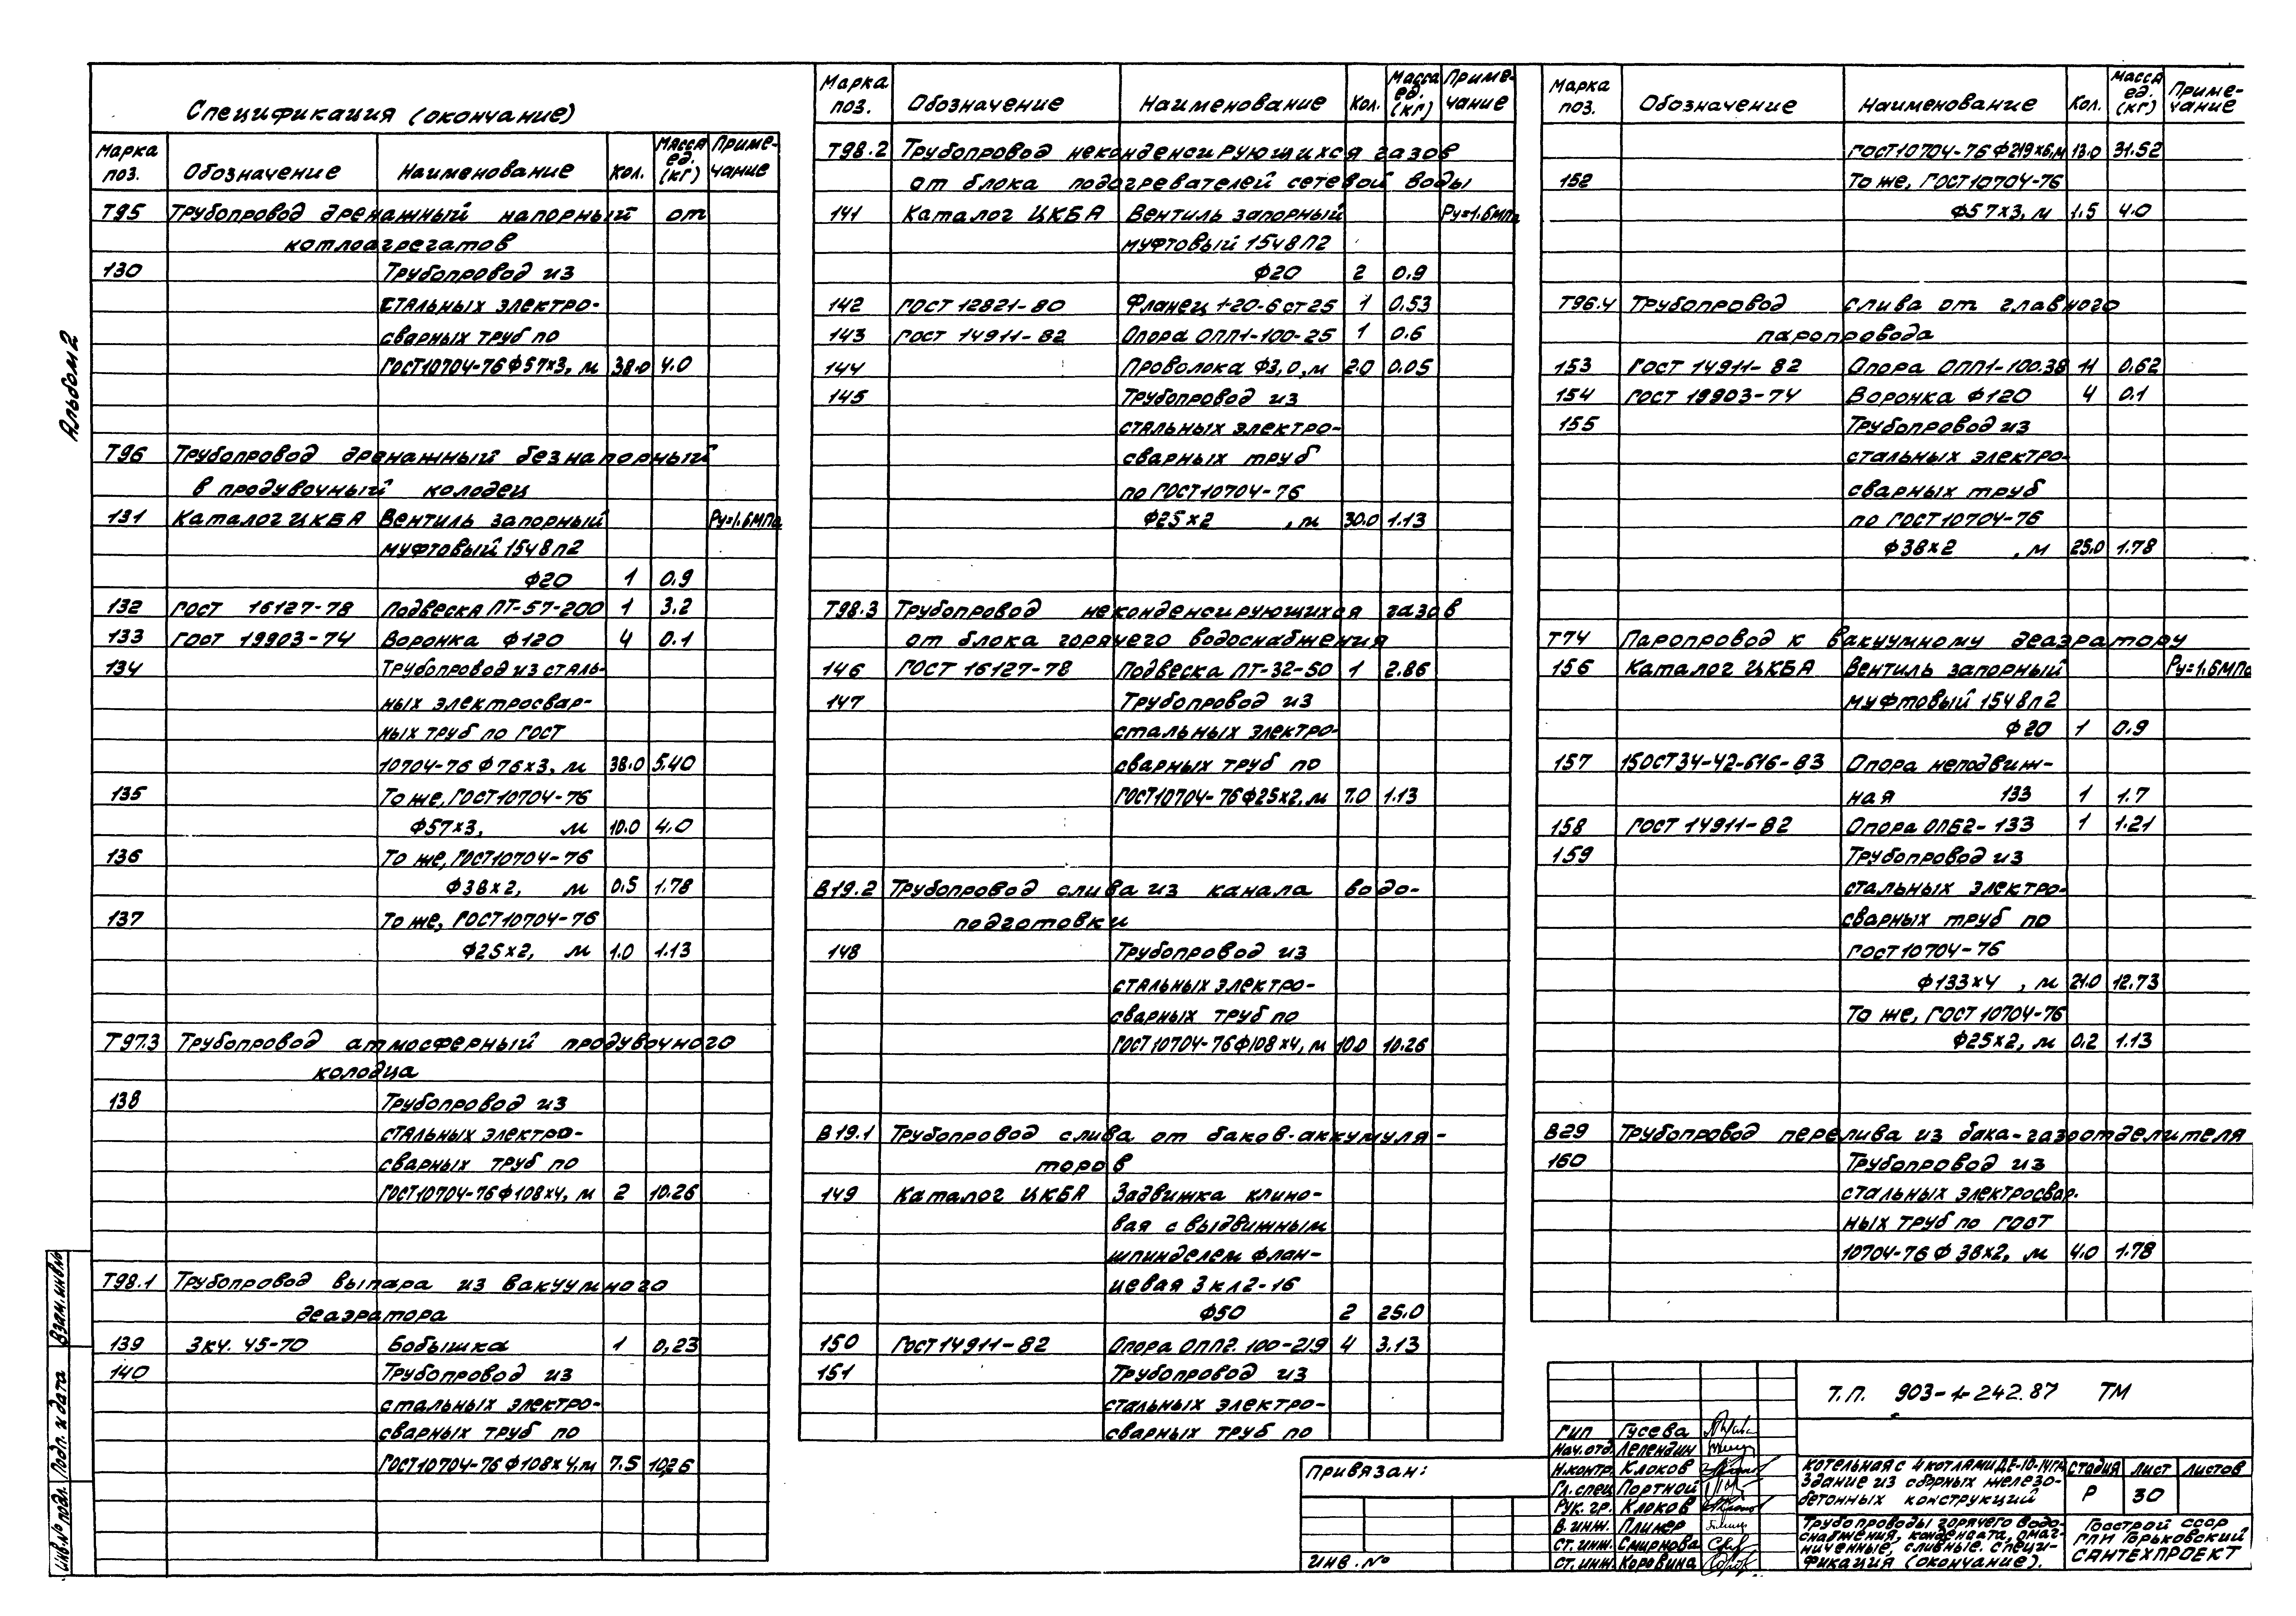 Альбом 2
Спецификация (окончание)
Марка поз. Обозначение Наименование Кол. Масса ед. (кг) Примечание
Т95 Трубопровод дренажный напорный от
котлоагрегатов
130 Трубопровод из
стальных электро-
сварных труб по
ГОСТ 10704-76 Ф57х3, м 38.0 4.0
Т96 Трубопровод дренажный безнапорный
в продувочный колодец
131 Каталог ЦКБА Вентиль запорный Ру=1.6МПа
муфтовый 15ч8п2
Ф20 1 0.9
132 ГОСТ 16127-78 Подвеска ПТ-57-200 1 3.2
133 ГОСТ 19903-74 Воронка Ф120 4 0.1
134 Трубопровод из сталь-
ных электросвар-
ных труб по ГОСТ
10704-76 Ф76х3, м 38.0 5.40
135 То же, ГОСТ 10704-76
Ф57х3, м 10.0 4.0
136 То же, ГОСТ 10704-76
Ф38х2, м 0.5 1.78
137 То же, ГОСТ 10704-76
Ф25х2, м 1.0 1.13
Т97.3 Трубопровод атмосферный продувочного
колодца
138 Трубопровод из
стальных электро-
сварных труб по
ГОСТ 10704-76 Ф108х4, м 2 10.26
Т98.1 Трубопровод выпара из вакуумного
деаэратора
139 ЗКЧ. 45-70 Бобышка 1 0,23
140 Трубопровод из
стальных электро-
сварных труб по
ГОСТ 10704-76 Ф108х4, м 7.5 10.26
Марка поз. Обозначение Наименование Кол. Масса ед. (кг) Приме-чание
Т98.2 Трубопровод неконденсирующихся газов
от блока подогревателей сетевой воды
141 Каталог ЦКБА Вентиль запорный Ру=1.6МПа
муфтовый 15ч8п2
Ф20 2 0.9
142 ГОСТ 12821-80 Фланец 1-20-6 ст25 1 0.53
143 ГОСТ 14911-82 Опора ОПП1-100-25 1 0.6
144 Проволока Ф3,0, м 2.0 0.05
145 Трубопровод из
стальных электро-
сварных труб
по ГОСТ 10704-76
Ф25х2 , м 30.0 1.13
Т98.3 Трубопровод неконденсирующихся газов
от блока горячего водоснабжения
146 ГОСТ 16127-78 Подвеска ПТ-32-50 1 2.86
147 Трубопровод из
стальных электро-
сварных труб по
ГОСТ 10704-76 Ф25х2, м 7.0 1.13
В19.2 Трубопровод слива из канала водо-
подготовки
148 Трубопровод из
стальных электро-
сварных труб по
ГОСТ 10704-76 Ф108х4, м 10.0 10.26
В19.1 Трубопровод слива от баков-аккумуля-
торов
149 Каталог ЦКБА Задвижка клино-
вая с выдвижным
шпинделем флан-
цевая 3кл2-16
Ф50 2 25.0
150 ГОСТ 14911-82 Опора ОПП2-100-219 4 3.13
151 Трубопровод из
стальных электро-
сварных труб по
Марка поз. Обозначение Наименование Кол. Масса ед. (кг) Приме-чание
ГОСТ 10704-76 Ф219х6, м 13.0 31.52
152 То же, ГОСТ 10704-76
Ф57х3, м 1.5 4.0
Т96.4 Трубопровод слива от главного
паропровода
153 ГОСТ 14911-82 Опора ОПП1-100.38 11 0.62
154 ГОСТ 19903-74 Воронка Ф120 4 0.1
155 Трубопровод из
стальных электро-
сварных труб
по ГОСТ 10704-76
Ф38х2 , м 25.0 1.78
Т74 Паропровод к вакуумному деаэратору
156 Каталог ЦКБА Вентиль запорный Ру=1.6МПа
муфтовый 15ч8п2
Ф20 1 0.9
157 15ОСТ34-42-616-83 Опора неподвиж-
ная 133 1 1.7
158 ГОСТ 14911-82 Опора ОПБ2-133 1 1.21
159 Трубопровод из
стальных электро-
сварных труб по
ГОСТ 10704-76
Ф133х4 , м 21.0 12.73
То же, ГОСТ 10704-76
Ф25х2, м 0.2 1.13
В29 Трубопровод перелива из бака-газоотделителя
160 Трубопровод из
стальных электросвар-
ных труб по ГОСТ
10704-76 Ф 38х2, м 4.0 1.78
Взам. инв.№
Подп. и дата
Инв.№ подл.
Привязан:
Инв. №
Т.П. 903-1-242.87 ТМ
ГИП Гусева
Нач. отд. Лелендин
Н.контр. Клоков
Гл. спец. Портной
Рук. гр. Клоков
В. инж. Плинер
Ст. инж. Смирнова
Ст. инж. Коровина
Котельная с 4 котлами ДЕ-10-14ГМ
Здание из сборных железо-
бетонных конструкций
Стадия Лист Листов
Р 30
Трубопроводы горячего водо-
снабжения, конденсата, омаг-
ниченные, сливные. Специ-
фикация (окончание).
Госстрой СССР
ГПИ Горьковский
САНТЕХПРОЕКТ